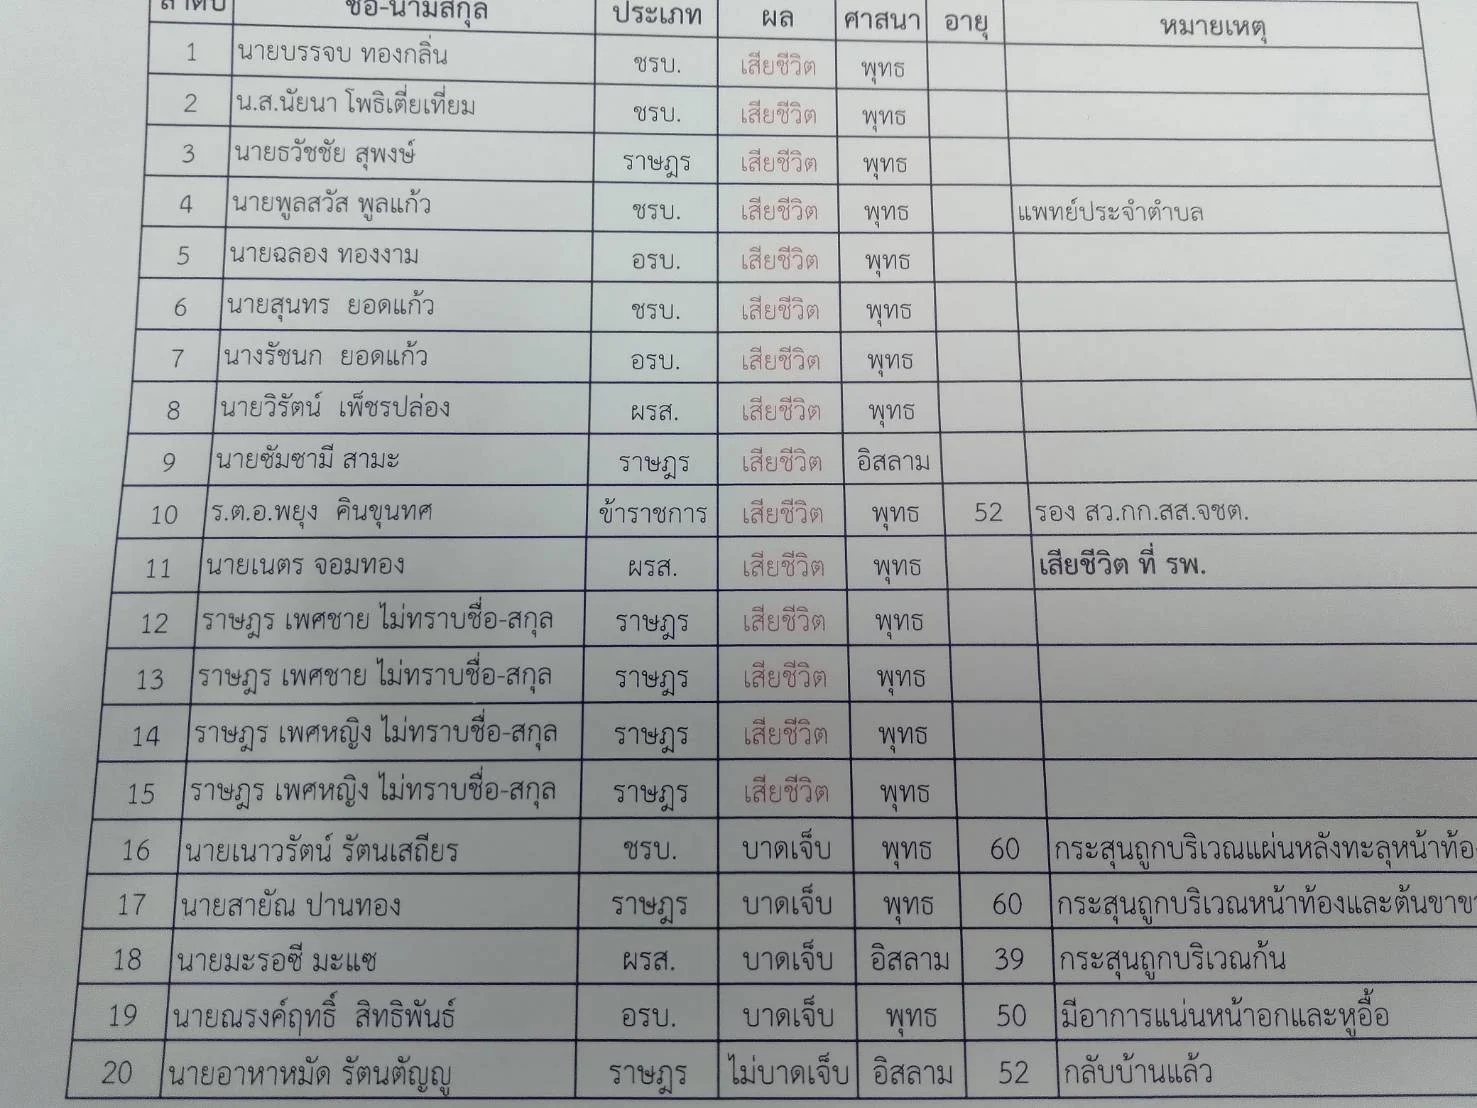 ลำดับ ชื่อ-นามสกุล ประเภท ผล ศาสนา อายุ หมายเหตุ
1 นายบรรจบ ทองกลิ่น ชรบ. เสียชีวิต พุทธ
2 น.ส.นัยนา โพธิเตี่ยเที่ยม ชรบ. เสียชีวิต พุทธ
3 นายธวัชชัย สุพงษ์ ราษฎร เสียชีวิต พุทธ
4 นายพูลสวัส พูลแก้ว ชรบ. เสียชีวิต พุทธ แพทย์ประจำตำบล
5 นายฉลอง ทองงาม อรบ. เสียชีวิต พุทธ
6 นายสุนทร ยอดแก้ว ชรบ. เสียชีวิต พุทธ
7 นางรัชนก ยอดแก้ว อรบ. เสียชีวิต พุทธ
8 นายวิรัตน์ เพ็ชรปล่อง ผรส. เสียชีวิต พุทธ
9 นายซัมซามี สามะ ราษฎร เสียชีวิต อิสลาม
10 ร.ต.อ.พยุง คินขุนทศ ข้าราชการ เสียชีวิต พุทธ 52 รอง สว.กก.สส.จชต.
11 นายเนตร จอมทอง ผรส. เสียชีวิต พุทธ เสียชีวิต ที่ รพ.
12 ราษฎร เพศชาย ไม่ทราบชื่อ-สกุล ราษฎร เสียชีวิต พุทธ
13 ราษฎร เพศชาย ไม่ทราบชื่อ-สกุล ราษฎร เสียชีวิต พุทธ
14 ราษฎร เพศหญิง ไม่ทราบชื่อ-สกุล ราษฎร เสียชีวิต พุทธ
15 ราษฎร เพศหญิง ไม่ทราบชื่อ-สกุล ราษฎร เสียชีวิต พุทธ
16 นายเนาวรัตน์ รัตนเสถียร ชรบ. บาดเจ็บ พุทธ 60 กระสุนถูกบริเวณแผ่นหลังทะลุหน้าท้อง
17 นายสายัณ ปานทอง ราษฎร บาดเจ็บ พุทธ 60 กระสุนถูกบริเวณหน้าท้องและต้นขา
18 นายมะรอซี มะแซ ผรส. บาดเจ็บ อิสลาม 39 กระสุนถูกบริเวณก้น
19 นายณรงค์ฤทธิ์ สิทธิพันธ์ อรบ. บาดเจ็บ พุทธ 50 มีอาการแน่นหน้าอกและหูอื้อ
20 นายอาหาหมัด รัตนตัญญู ราษฎร ไม่บาดเจ็บ อิสลาม 52 กลับบ้านแล้ว